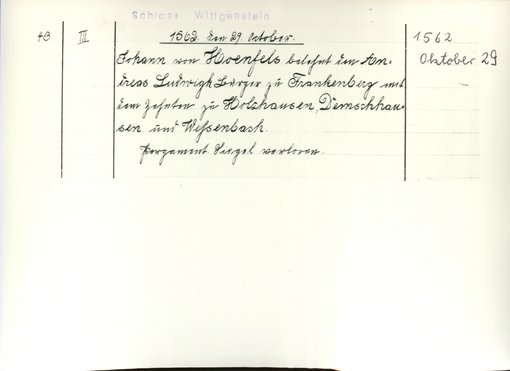 Schloss Wittgenstein
40 III 1562 den 29. October. 1562
Oktober 29
Johann von Hoenfels belehnt den An-
dreas Ludwigh Bürger zu Frankenberg mit
dem Zehnten zu Holzhausen, Demschhau-
sen und Weissenbach.
Pergament Siegel verloren.